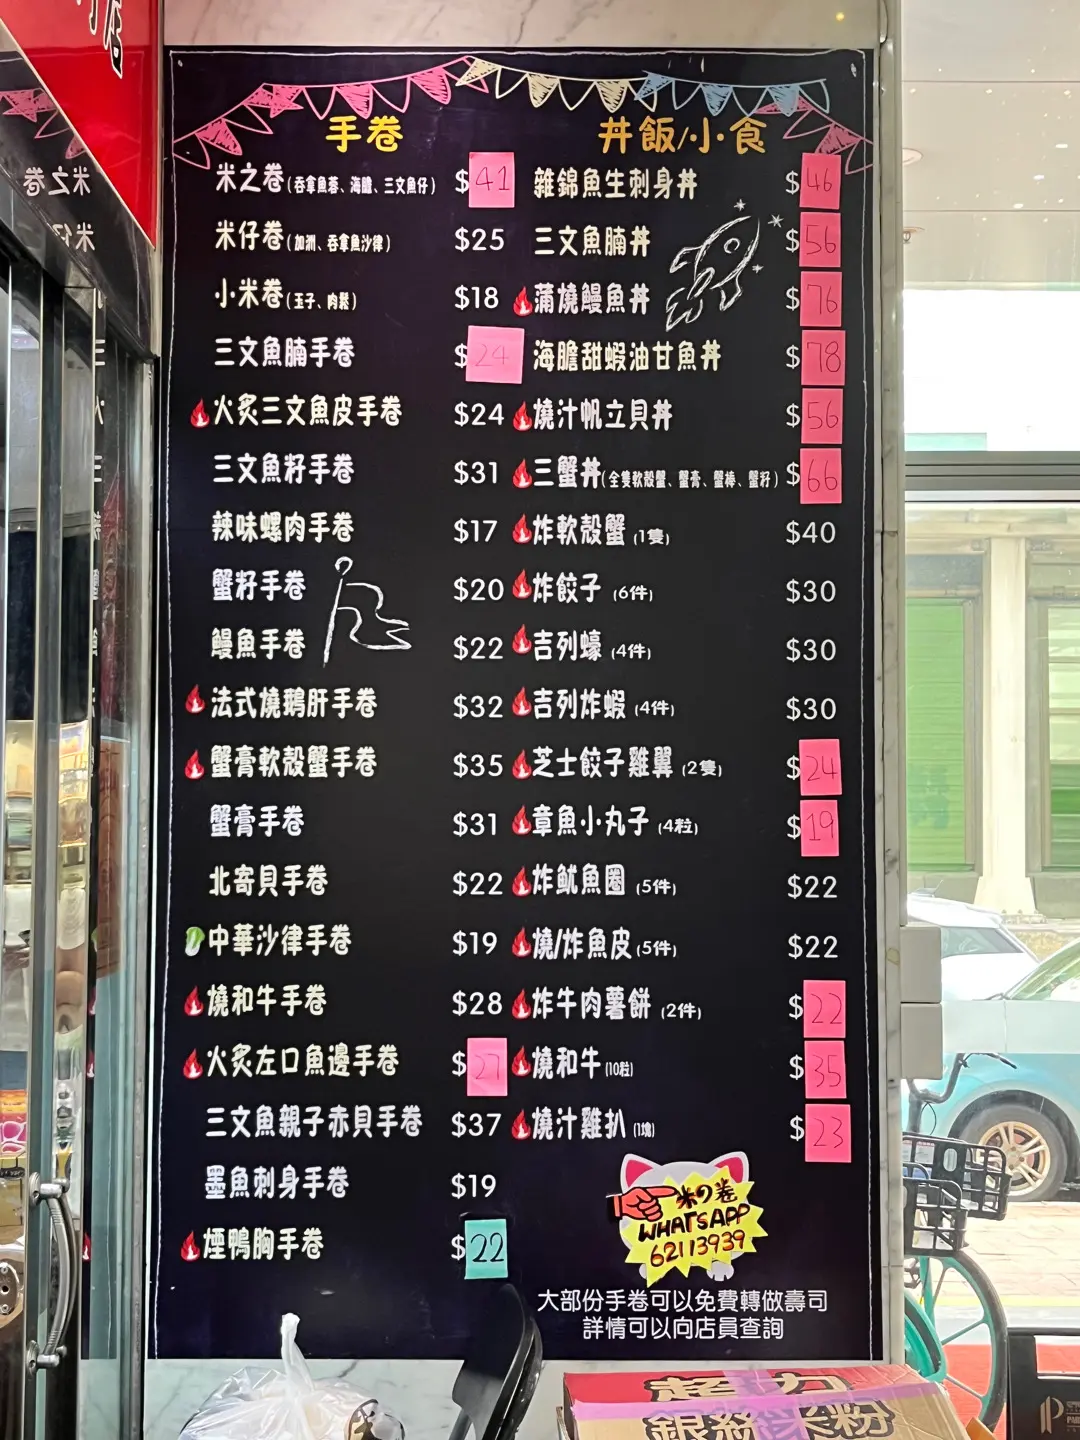 手卷
米之卷(吞拿魚蓉、海膽、三文魚仔) $41
米仔卷(加洲、吞拿魚沙律) $25
小米卷(玉子、肉鬆) $18
三文魚腩手卷 $24
火炙三文魚皮手卷 $24
三文魚籽手卷 $31
辣味螺肉手卷 $17
蟹籽手卷 $20
鰻魚手卷 $22
法式燒鵝肝手卷 $32
蟹膏軟殼蟹手卷 $35
蟹膏手卷 $31
北寄貝手卷 $22
中華沙律手卷 $19
燒和牛手卷 $28
火炙左口魚邊手卷 $27
三文魚親子赤貝手卷 $37
墨魚刺身手卷 $19
煙鴨胸手卷 $22
丼飯/小食
雜錦魚生刺身丼 $46
三文魚腩丼 $56
蒲燒鰻魚丼 $76
海膽甜蝦油甘魚丼 $78
燒汁帆立貝丼 $56
三蟹丼(全隻軟殼蟹、蟹膏、蟹棒、蟹籽) $66
炸軟殼蟹 (1隻) $40
炸餃子 (6件) $30
吉列蠔 (4件) $30
吉列炸蝦 (4件) $30
芝士餃子雞翼 (2隻) $24
章魚小丸子 (4粒) $19
炸魷魚圈 (5件) $22
燒/炸魚皮 (5件) $22
炸牛肉薯餅 (2件) $22
燒和牛 (10粒) $35
燒汁雞扒 (1塊) $23
米の卷
WHATSAPP
62113939
大部份手卷可以免費轉做壽司
詳情可以向店員查詢
超力
銀絲米粉